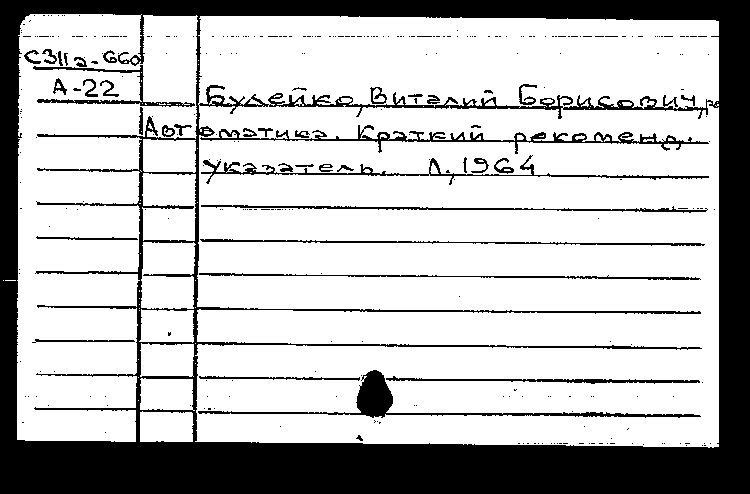 С311а-660
А-22
Булейко, Виталий Борисович, ре
Автоматика. Краткий рекоменд.
указатель. Л, 1964